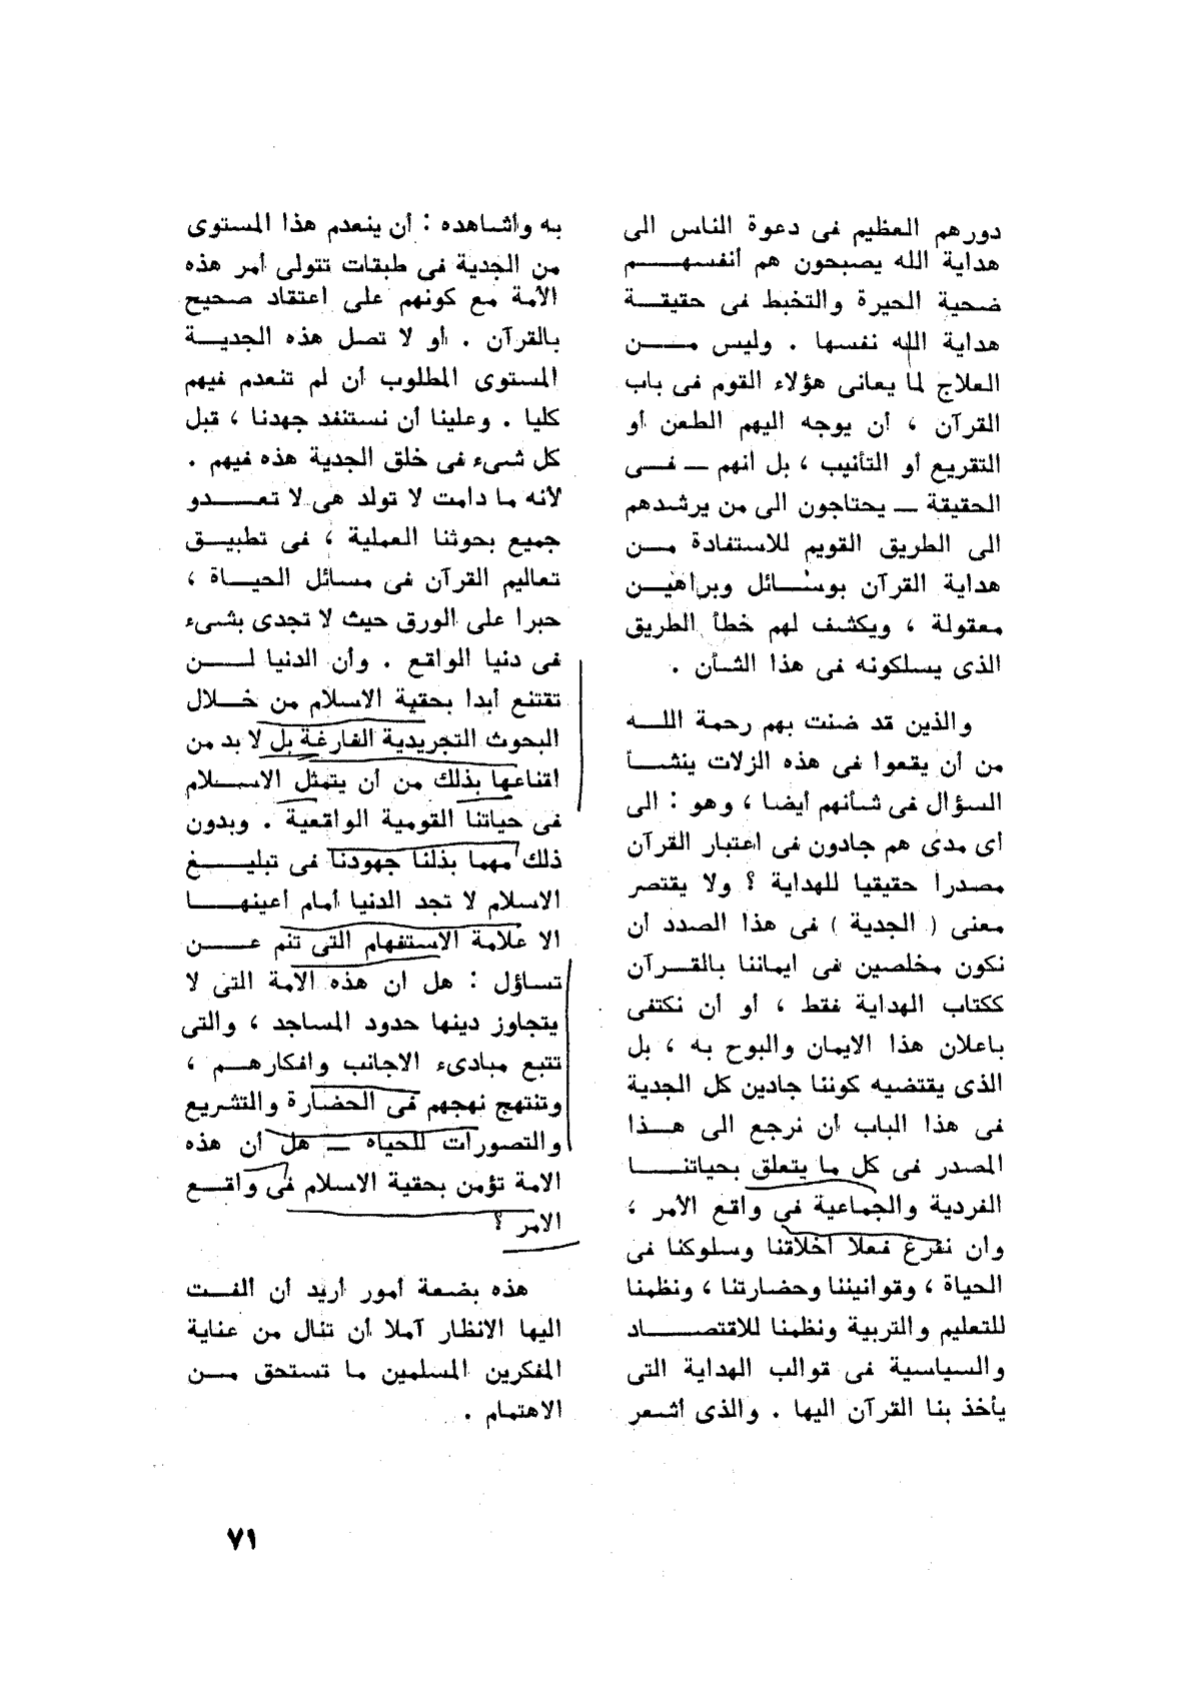 دورهم العظيم فى دعوة الناس الى
هداية الله يصبحون هم أنفسهم
ضحية الحيرة والتخبط فى حقيقة
هداية الله نفسها . وليس من
العلاج لما يعانى هؤلاء القوم فى باب
القرآن ، أن يوجه اليهم الطعن أو
التقريع أو التأنيب ، بل انهم ـ فى
الحقيقة ـ يحتاجون الى من يرشدهم
الى الطريق القويم للاستفادة من
هداية القرآن بوسائل وبراهين
معقولة ، ويكشف لهم خطأ الطريق
الذى يسلكونه فى هذا الشأن .
والذين قد ضنت بهم رحمة الله
من أن يقعوا فى هذه الزلات ينشأ
السؤال فى شأنهم أيضا ، وهو : الى
أى مدى هم جادون فى اعتبار القرآن
مصدرا حقيقيا للهداية ؟ ولا يقتصر
معنى ( الجدية ) فى هذا الصدد أن
نكون مخلصين فى ايماننا بالقرآن
ككتاب الهداية فقط ، أو أن نكتفى
باعلان هذا الايمان والبوح به ، بل
الذى يقتضيه كوننا جادين كل الجدية
فى هذا الباب أن نرجع الى هذا
المصدر فى كل ما يتعلق بحياتنا
الفردية والجماعية فى واقع الأمر ،
وان نفرغ فعلا أخلاقنا وسلوكنا فى
الحياة ، وقوانيننا وحضارتنا ، ونظمنا
للتعليم والتربية ونظمنا للاقتصاد
والسياسية فى قوالب الهداية التى
يأخذ بنا القرآن اليها . والذى أشعر
به وأشاهده : أن ينعدم هذا المستوى
من الجدية فى طبقات تتولى أمر هذه
الأمة مع كونهم على اعتقاد صحيح
بالقرآن . أو لا تصل هذه الجدية
المستوى المطلوب ان لم تنعدم فيهم
كليا . وعلينا أن نستنفد جهدنا ، قبل
كل شىء فى خلق الجدية هذه فيهم .
لأنه ما دامت لا تولد هى لا تعدو
جميع بحوثنا العملية ، فى تطبيق
تعاليم القرآن فى مسائل الحياة ،
حبرا على الورق حيث لا تجدى بشىء
فى دنيا الواقع . وأن الدنيا لن
تقتنع أبدا بحقية الاسلام من خلال
البحوث التجريدية الفارغة بل لا بد من
اقناعها بذلك من أن يتمثل الاسلام
فى حياتنا القومية الواقعية . وبدون
ذلك مهما بذلنا جهودنا فى تبليغ
الاسلام لا تجد الدنيا أمام أعينها
الا علامة الاستفهام التى تنم عن
تساؤل : هل ان هذه الامة التى لا
يتجاوز دينها حدود المساجد ، والتى
تتبع مبادىء الاجانب وافكارهم ،
وتنتهج نهجهم فى الحضارة والتشريع
والتصورات للحياة ـ هل أن هذه
الامة تؤمن بحقية الاسلام فى واقع
الامر ؟
هذه بضعة أمور أريد أن الفت
اليها الانظار آملا أن تنال من عناية
المفكرين المسلمين ما تستحق من
الاهتمام .
٧١